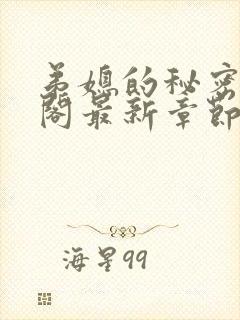 弟媳的秘密
閣最新章節
海星99